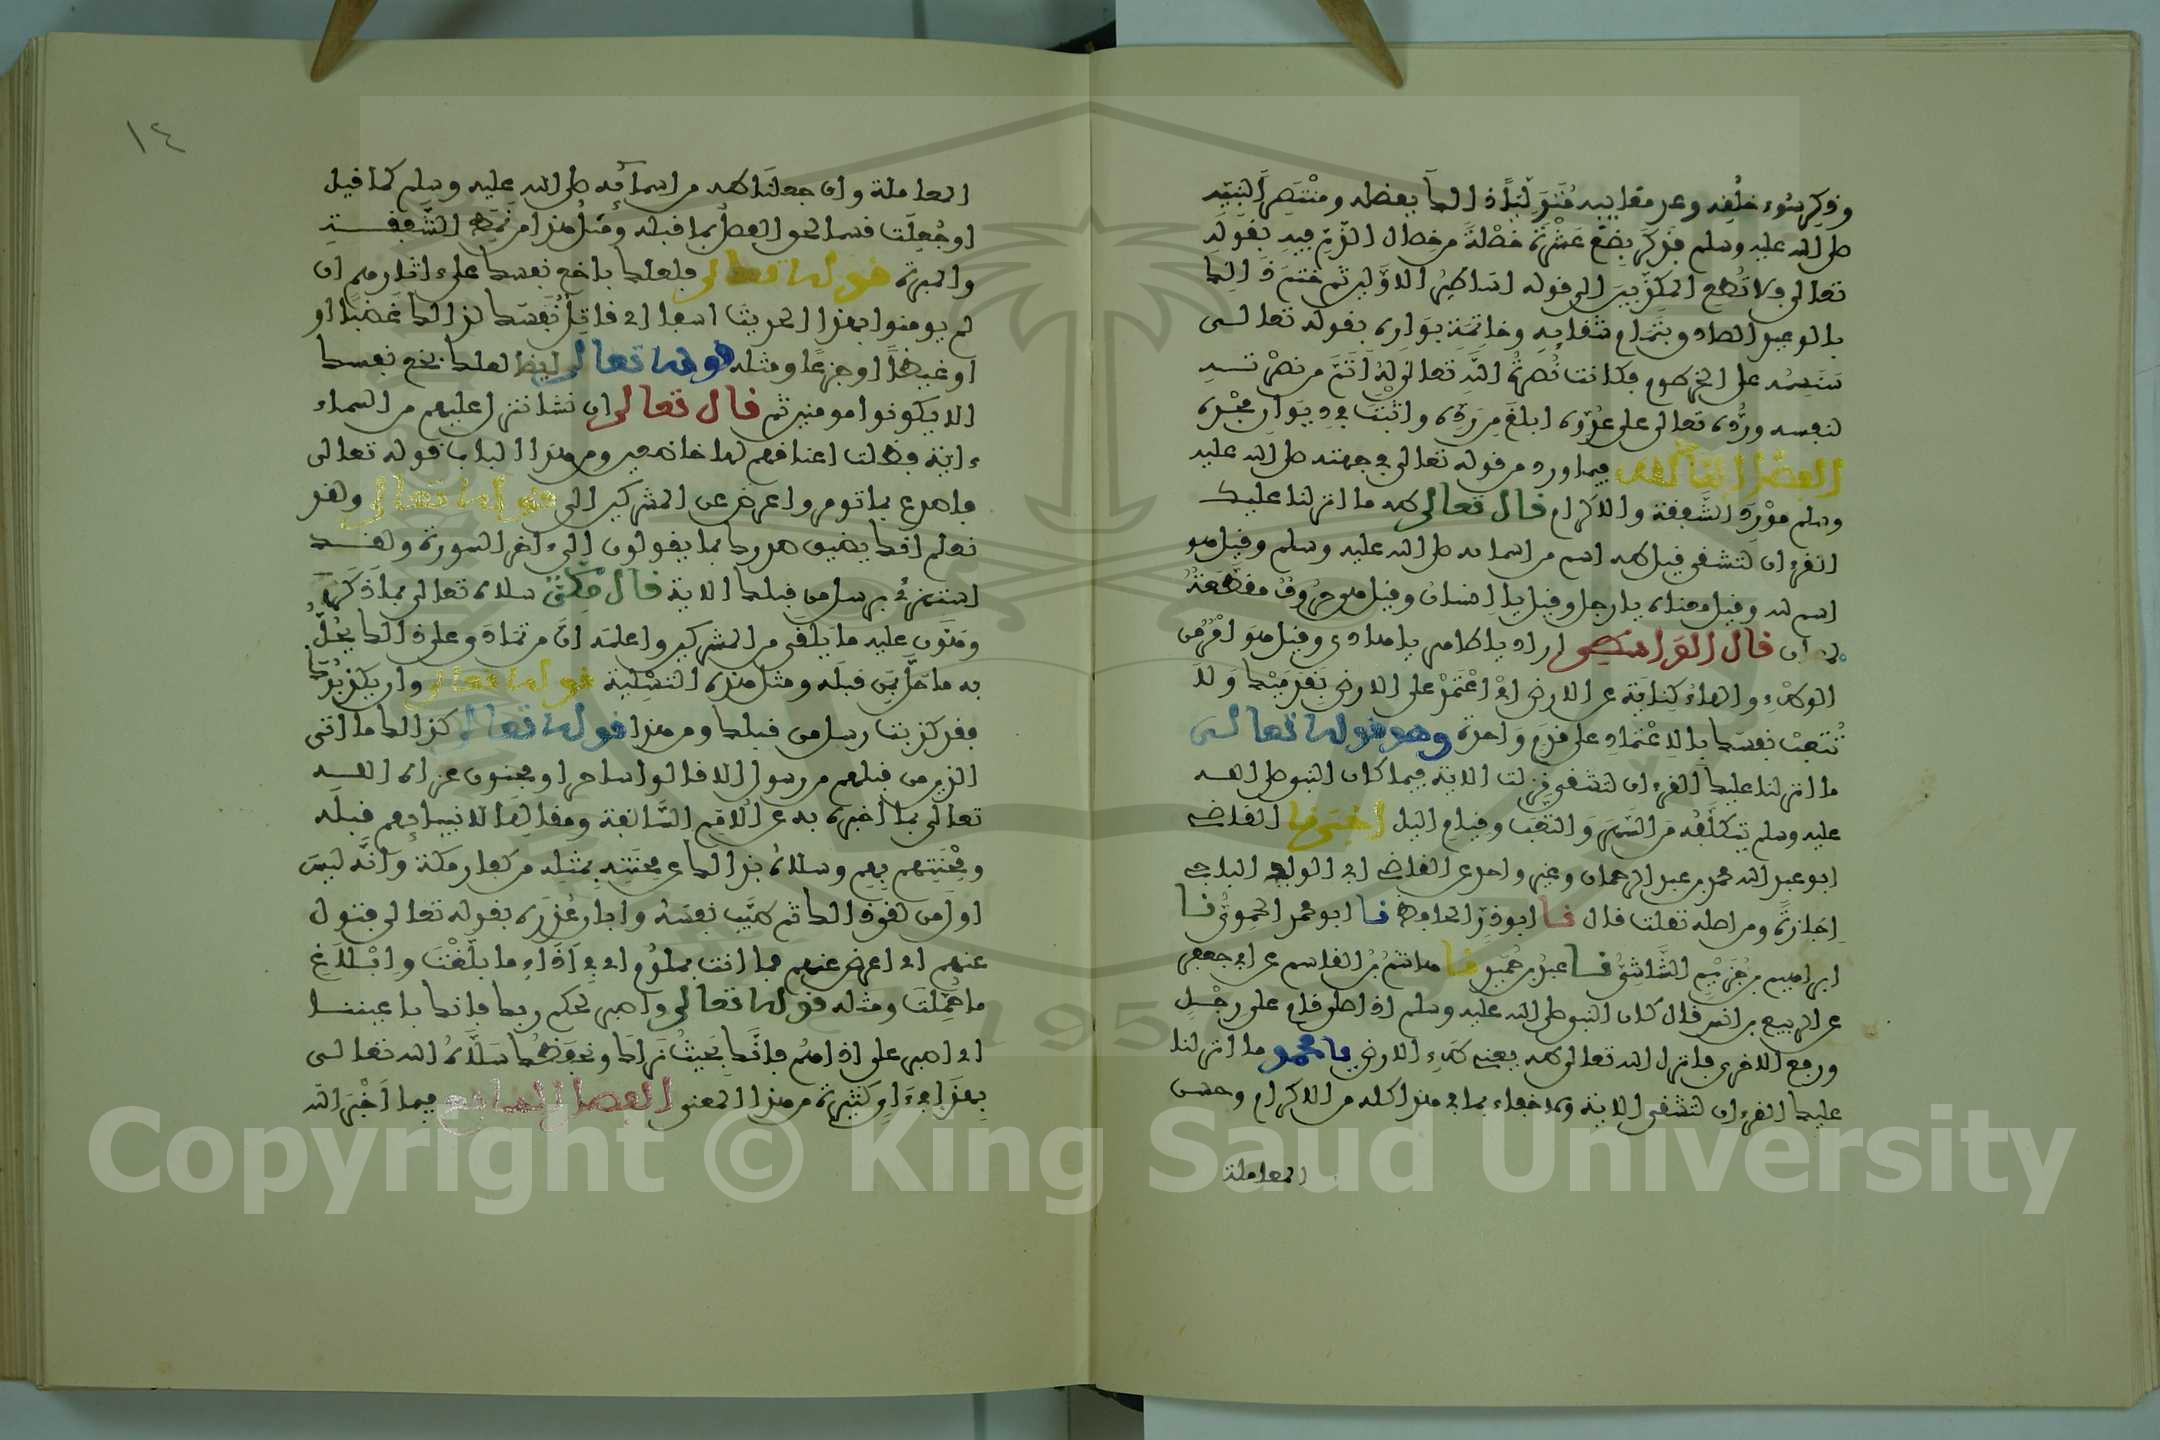 وذكر سوء خلقه وعد معايبه متوليا ذلك بفضله ومنتصرا لنبيه
صلى الله عليه وسلم فذكر بضع عشرة خصلة من خصال الذم فيه بقوله
تعالى فلا تطع المكذبين الى قوله اساطير الاولين ثم ختم ذلك
بالوعيد الصادق بتمام شقايه وخاتمة بواره بقوله تعالى
سنسمه على الخرطوم فكانت نصرة الله تعالى له اتم من نصرته
لنفسه ورده تعالى على عدوه ابلغ من رده واثبت في ديوان مجده
الفصل السادس فيما ورد من قوله تعالى في جهته صلى الله عليه
وسلم مورد الشفقة والاكرام قال تعالى طه ما انزلنا عليك
القرءان لتشقى قيل طه اسم من اسمايه صلى الله عليه وسلم وقيل هو
اسم لله وقيل معناه يا رجل وقيل يا انسان وقيل هي حروف مقطعة
لمعان قال الواسطي اراد يا طاهر يا هادي وقيل هو امر من
الوطء والهاء كناية عن الارض اي اعتمد على الارض بقدميك ولا
تتعب نفسك بالاعتماد على قدم واحدة وهو قوله تعالى
ما انزلنا عليك القرءان لتشقى نزلت الاية فيما كان النبي صلى الله
عليه وسلم يتكلفه من السهر والتعب وقيام اليل اخبرنا القاضي
ابو عبد الله محمد بن عبد الرحمان وغير واحد عن القاضي ابي الوليد الباجي
اجازة ومن اصله نقلت قال نا ابو ذر الحافظ نا ابو محمد الحموي نا
ابراهيم بن خزيم الشاشي نا عبد بن حميد نا هاشم بن القاسم عن ابي جعفر
عن الربيع بن انس قال كان النبي صلى الله عليه وسلم اذا صلى قام على رجل
ورفع الاخرى فانزل الله تعالى طه يعني طء الارض يا محمد ما انزلنا
عليك القرءان لتشقى الاية ولا خفاء بما في هذا كله من الاكرام وحسن
المعاملة
١٤
المعاملة وان جعلنا طه من اسمائه صلى الله عليه وسلم كما قيل
او جعلت قسما لحق الفصل بما قبله ومثل هذا من نمط الشفقة
والمبرة قوله تعالى فلعلك باخع نفسك على ءاثارهم ان
لم يومنوا بهذا الحديث اسفا اي قاتل نفسك لذلك غضبا او
او غيظا او جزعا ومثله قوله تعالى ايضا لعلك باخع نفسك
الا يكونوا مومنين ثم قال تعالى ان نشا ننزل عليهم من السماء
ءاية فظلت اعناقهم لها خاضعين ومن هذا الباب قوله تعالى
فاصدع بما تومر واعرض عن المشركين الى قوله تعالى ولقد
نعلم انك يضيق صدرك بما يقولون الى ءاخر السورة ولقد
استهزئ برسل من قبلك الاية قال مكي سلاه تعالى بما ذكر
وهون عليه ما يلقى من المشركين واعلمه ان من تمادى على ذلك يحل
به ما حل بمن قبله ومثل هذه التسلية قوله تعالى وان يكذبوك
فقد كذبت رسل من قبلك ومن هذا قوله تعالى كذلك ما اتى
الذين من قبلهم من رسول الا قالوا ساحر او مجنون عزاه الله
تعالى بما اخبره به عن الامم السالفة ومقالها لانبيايهم قبله
ومحنتهم بهم وسلاه بذلك عن محنته بمثله من كفار مكة وانه ليس
اول من لقي ذلك ثم طيب نفسه وابان عذره بقوله تعالى فتول
عنهم اي اعرض عنهم فما انت بملوم اي في اداء ما بلغت وابلاغ
ما حملت ومثله قوله تعالى واصبر لحكم ربك فانك باعيننا
اي اصبر على اذاهم فانك بحيث نراك ونحفظك سلاه الله تعالى
بهذا في ءاي كثيرة من هذا المعنى الفصل السابع فيما اخبر الله
Copyright © King Saud University
1957